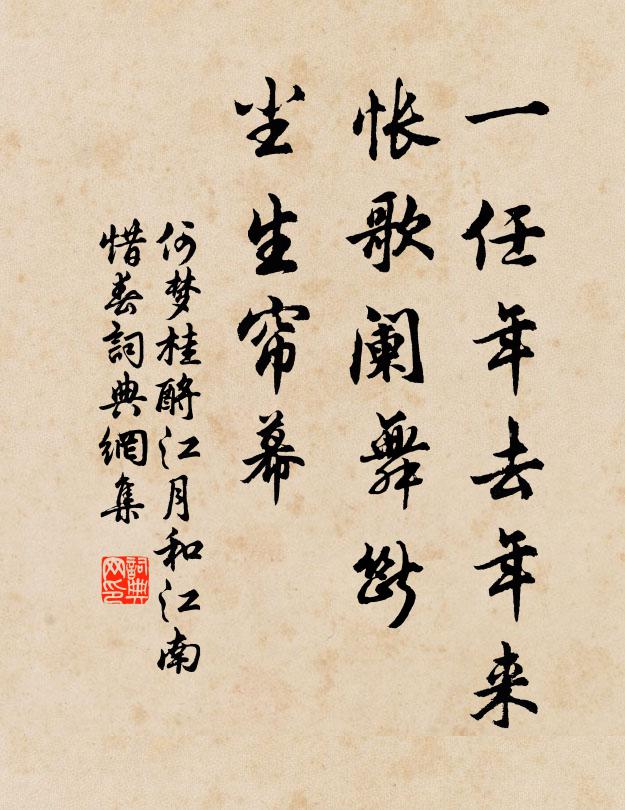 一任年去年来
怅歌阑舞断
尘生帘幕
何梦桂酹江月和江南
惜春詞典網集
詞典网印